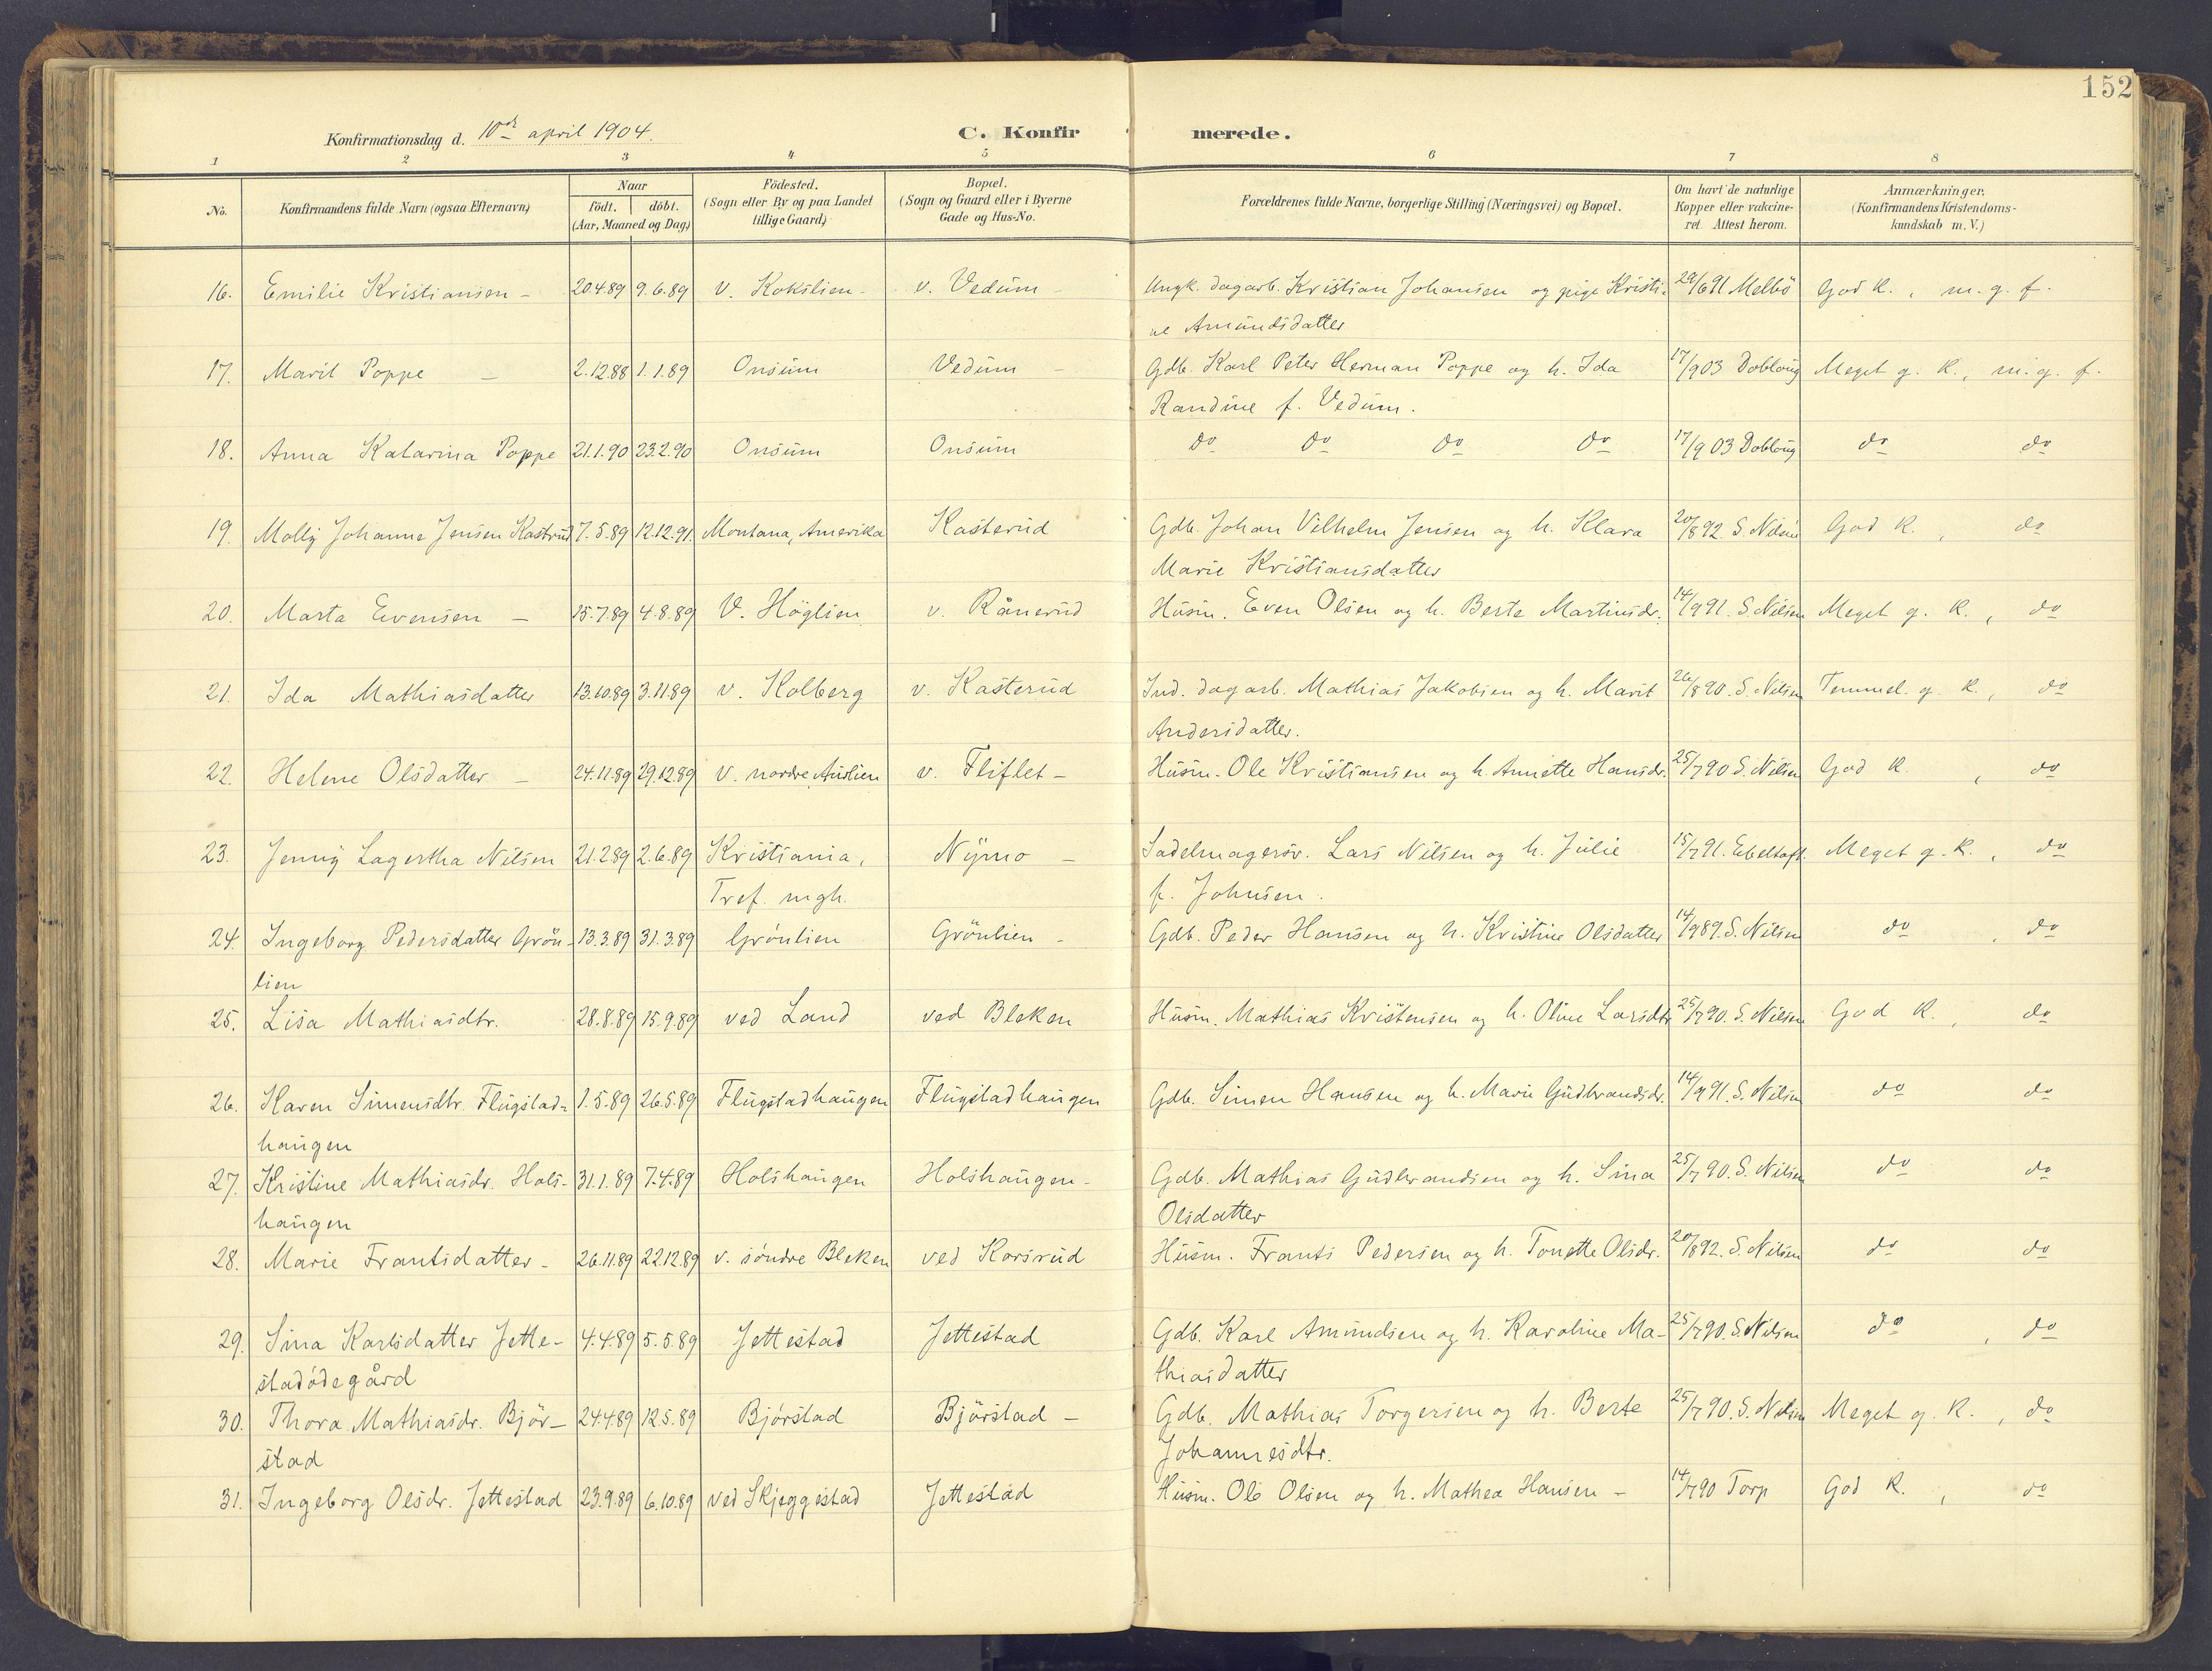 152
Konfirmationsdag d. 10de april 1904.
C. Konfirmerede.
1 2 3 4 5 6 7 8
No.
Konfirmandens fulde Navn (ogsaa Efternavn)
Naar
födt. döbt.
(Aar, Maaned og Dag)
Födested.
(Sogn eller By og paa Landet
tillige Gaard)
Bopæl.
(Sogn og Gaard eller i Byerne
Gade og Hus-No.
Forældrenes fulde Navne, borgerlige Stilling (Næringsvei) og Bopæl.
Om havt de naturlige
Kopper eller vakcine-
ret. Attest herom.
Anmærkninger.
(Konfirmandens Kristendoms-
kundskab m. V.)
16. Emilie Kristiansen - 20.4.89 9.6.89 v. Kokslien - v. Vedum - Ungk. dagarb. Kristian Johansen og pige Kristi- 29/6 91 Melbö God K. , m. g. f.
ne Amundsdatter
17. Marit Poppe - 2.12.88 1.1.89 Onsum Vedum - Gdb. Karl Peter Herman Poppe og h. Ida 17/9 03 Dobloug Meget g. K., m. g. f.
Randine f. Vedum.
18. Anna Katarina Poppe 21.1.90 23.2.90 Onsum Onsum do do do do 17/9 03 Dobloug do do
19. Molly Johanne Jensen Kastrud 7.5.89 12.12.91. Montana, Amerika Kasterud Gdb. Johan Vilhelm Jensen og h. Klara 20/8 92. S. Nilsen God K. , do
Marie Kristiansdatter
20. Marta Evensen - 15.7.89 4.8.89 V. Höglien v. Rånerud Husm. Even Olsen og h. Berte Martinsdr. 14/9 91. S. Nilsen Meget g. K. , do
21. Ida Mathiasdatter 13.10.89 3.11.89 v. Kolberg v. Kasterud Ind. dagarb. Mathias Jakobsen og h. Marit 26/8 90. S. Nilsen Temmel. g. K. , do
Andersdatter.
22. Helene Olsdatter - 24.11.89 29.12.89 v. nordre Aurlien v. Fliflet - Husm. Ole Kristiansen og h. Annette Hansdr. 25/7 90 S. Nilsen God K. , do
23. Jenny Lagertha Nilsen 21.2.89 2.6.89 Kristiania, Nymo - Sadelmagersv. Lars Nilsen og h. Julie 15/7 91. Ebeltoft. Meget g. K. , do
Tref. mgh. f. Johnsen.
24. Ingeborg Pedersdatter Grön- 13.3.89 31.3.89 Grönlien Grönlien - Gdb. Peder Hansen og h. Kristine Olsdatter 14/9 89. S. Nilsen do , do
lien
25. Lisa Mathiasdtr. 28.8.89 15.9.89 ved Land ved Bleken Husm. Mathias Kristensen og h. Oline Larsdtr 25/7 90. S. Nilsen God K. , do
26. Karen Simensdtr. Flugstad- 1.5.89 26.5.89 Flugstadhaugen Flugstadhaugen Gdb. Simen Hansen og h. Marie Gudbrandsdr. 14/9 91. S. Nilsen do do
haugen
27. Kristine Mathiasdr. Hols- 31.1.89 7.4.89 Holshaugen Holshaugen - Gdb. Mathias Gudbrandsen og h. Sina 25/7 90. S. Nilsen do do
haugen Olsdatter
28. Marie Frantsdatter - 26.11.89 22.12.89 v. söndre Bleken ved Korsrud Husm. Frants Pedersen og h. Tonette Olsdr. 20/8 92. S. Nilsen do do
29. Sina Karlsdatter Jette- 4.4.89 5.5.89 Jettestad Jettestad Gdb. Karl Amundsen og h. Karoline Ma- 25/7 90. S. Nilsen do , do
stadödegård thiasdatter
30. Thora Mathiasdr. Björ- 24.4.89 12.5.89 Björstad Björstad - Gdb. Mathias Torgersen og h. Berte 25/7 90. S. Nilsen Meget g. K. , do
stad Johannesdtr.
31. Ingeborg Olsdr. Jettestad 23.9.89 6.10.89 ved Skjeggestad Jettestad Husm. Ole Olsen og h. Mathea Hansen - 14/7 90 Torp God K. , do